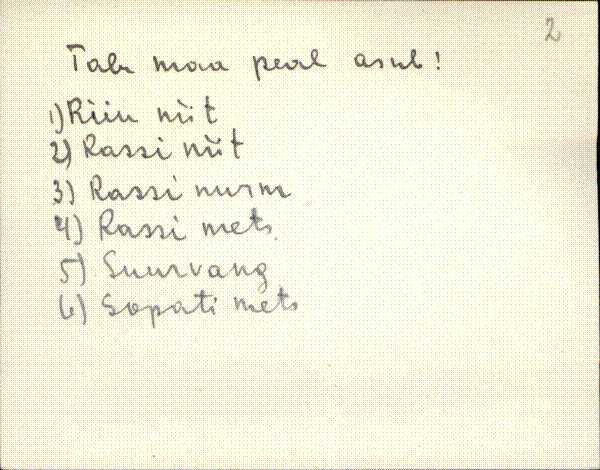 2
Talu maa peal asub!
1) Riiu niit
2) Rassi niit
3) Rassi nurm
4) Rassi mets
5) Suurvang
6) Sopati mets